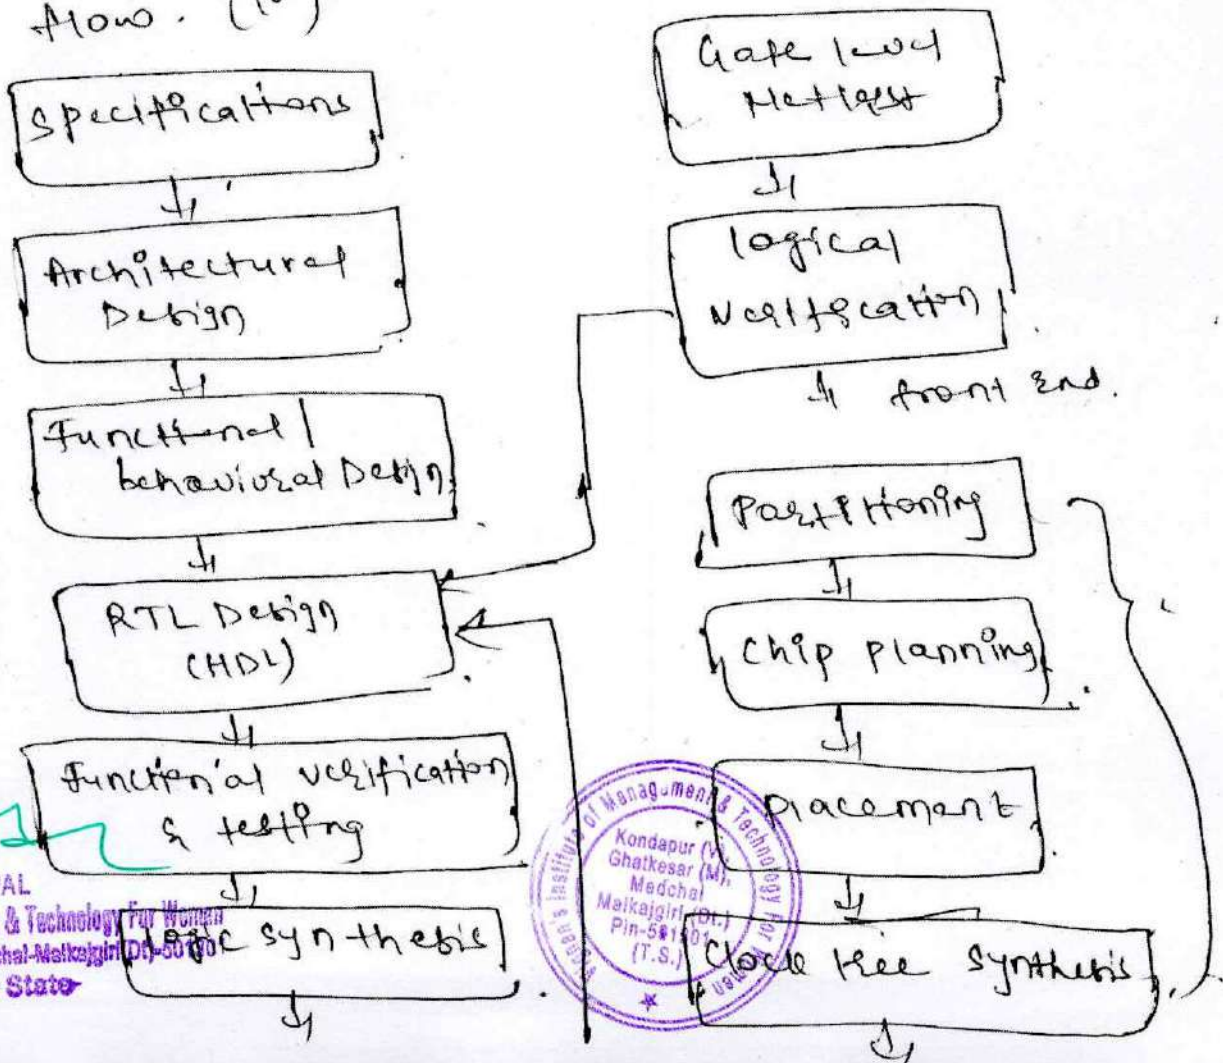 flow. (10)
Specifications
Architectural
Design
Functional |
behavioural Design
RTL Design
(HDL)
Functional verification
& testing
Logic synthesis
Gate level
Netlist
logical
Verification
front end.
Partitioning
Chip planning
Placement
Clock tree synthesis
AL
& Technology For Women
hal-Malkajgiri(Dt)-501301
State
Institute of Management & Technology For Women
Kondapur (V),
Ghatkesar (M),
Medchal
Malkajgiri (Dt.)
Pin-501301
(T.S.)